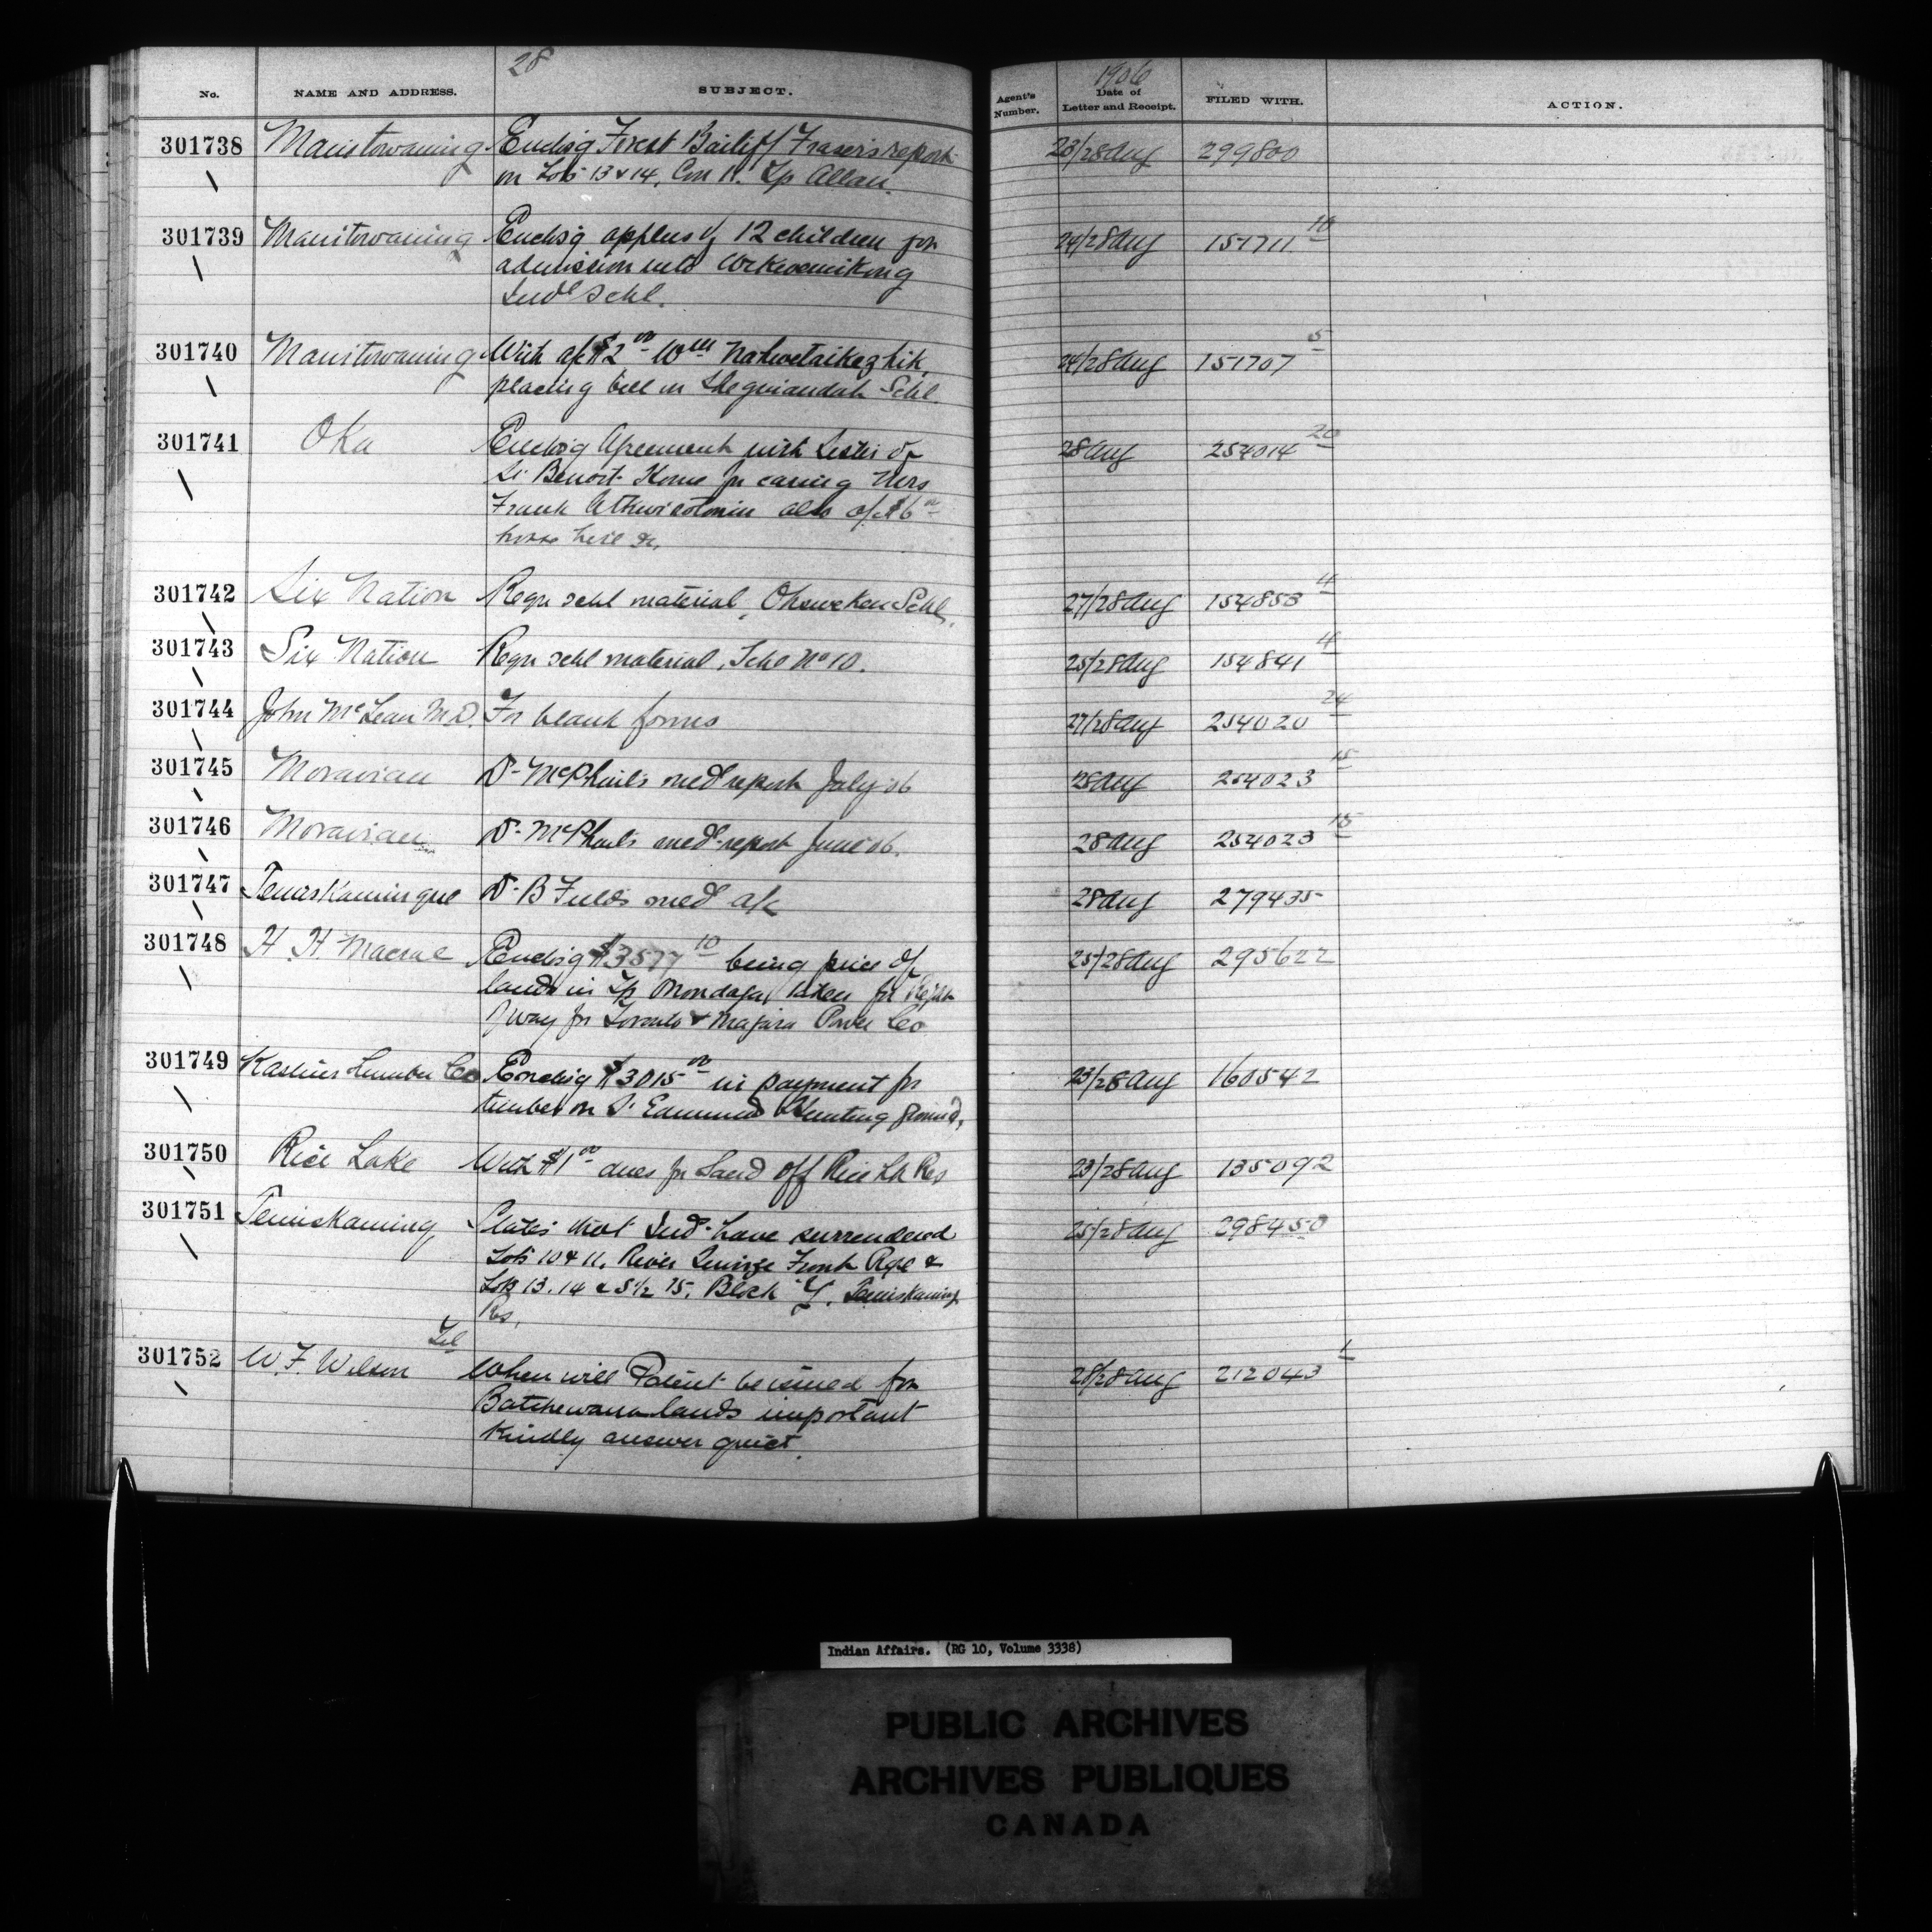 28
No. NAME AND ADDRESS. SUBJECT. Agent's Number. 1906 Date of Letter and Receipt. FILED WITH. ACTION.
301738 Manitowaning Enclsg Forest Bailiff Fraser's report 23/28 Aug 299800
on Lots 13 & 14, Con 11. Tp Allan.
301739 Manitowaning Enclsg applns of 12 children for 24/28 Aug 151711 10
admission into Wikwemikong
Indl Schl.
301740 Manitowaning With a/c $2 00 Wm Nahwetaikezhik, 24/28 Aug 151707 5
placing bell in Sheguiandah Schl.
301741 Oka Enclsg Agreement with Sisters of 28 Aug 254014 20
St Benoit Home for caring Mrs
Frank also a/c $6 00
horse hire &c,
301742 Six Nation Reqn schl material, Ohsweken Schl. 27/28 Aug 154853 4
301743 Six Nation Reqn schl material, Schl No 10. 25/28 Aug 154841 4
301744 John McLean M.D. For blank forms 27/28 Aug 254020 24
301745 Moravian Dr McPhail's med report July 06 28 Aug 254023 15
301746 Moravian Dr McPhail's med report June 06. 28 Aug 254023 15
301747 Temiskamingue Dr B Field's med a/c 28 Aug 279435
301748 H. H. Macrae Enclsg $3577 10 being price of 25/28 Aug 295622
lands in Tp Onondaga, taken for Right
of way for Toronto & Niagara Power Co
301749 Kastner Lumber Co Enclsg $3015 00 in payment for 23/28 Aug 160542
timber on St Edmund Hunting ground,
301750 Rice Lake With $1 00 dues for Sand off Rice Lk Res 23/28 Aug 135092
301751 Temiskaming States that Inds have surrendered 25/28 Aug 298450
Lots 10 & 11, River Quinze Front Rge &
Lots 13. 14 & S 1/2 15, Block "Y", Temiskaming
Res,
Tel
301752 W. F. Wilson When will Patent be issued for 28/28 Aug 212043 1
Batchewana lands important
Kindly answer quick.
Indian Affairs. (RG 10, Volume 3338)
PUBLIC ARCHIVES
ARCHIVES PUBLIQUES
CANADA